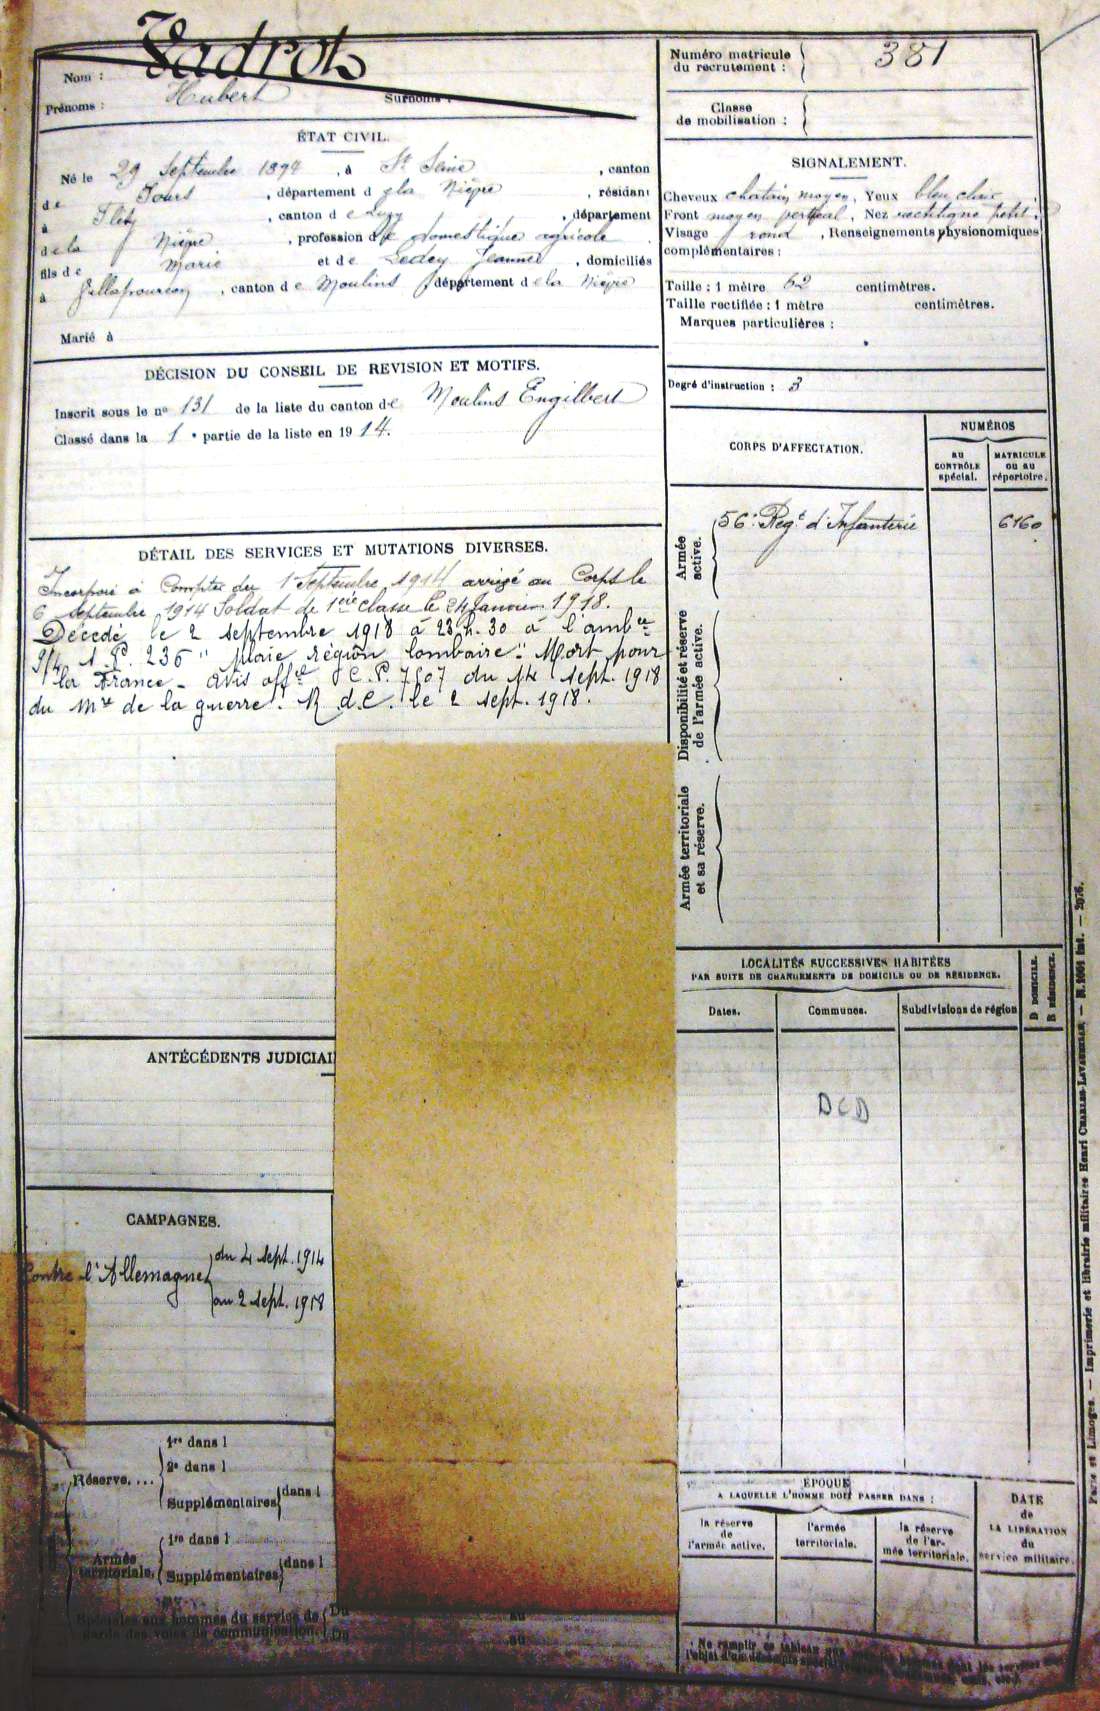 Nom : Vadrot
Prénoms : Hubert Surnoms :
ÉTAT CIVIL.
Né le 29 Septembre 1894, à St Seine, canton
de Fours, département de la Nièvre, résidant
à Fléty, canton de Luzy, département
de la Nièvre, profession de domestique agricole
fils de Marie et de Jeanne, domiciliés
à Villapourçon, canton de Moulins département de la Nièvre
Marié à
DÉCISION DU CONSEIL DE REVISION ET MOTIFS.
Inscrit sous le no 131 de la liste du canton de Moulins Engilbert
Classé dans la 1e partie de la liste en 1914.
DÉTAIL DES SERVICES ET MUTATIONS DIVERSES.
Incorporé à Compter du 1 Septembre 1914 arrivé au Corps le
6 septembre 1914 Soldat de 1ère classe le 24 Janvier 1918.
Décédé le 2 septembre 1918 à 23 h. 30 à l'ambce
S.P. 236 "plaie région lombaire" Mort pour
la France - avis offel C.P. 7807 du 14 sept. 1918
du Mre de la guerre. R d.C. le 2 sept. 1918.
ANTÉCÉDENTS JUDICIAI
CAMPAGNES.
Contre l'Allemagne du 4 sept. 1914
au 2 sept. 1918
Réserve....
1re dans l
2e dans l
Supplémentaires dans l
Armée territoriale.
1re dans l
Supplémentaires dans l
Spéciales aux hommes du service de Du au
garde des voies de communication. Du au
Numéro matricule du recrutement : 381
Classe de mobilisation :
SIGNALEMENT.
Cheveux chatain moyen, Yeux bleu clair
Front moyen vertical, Nez rectiligne petit
Visage rond, Renseignements physionomiques
complémentaires :
Taille : 1 mètre 62 centimètres.
Taille rectifiée : 1 mètre centimètres.
Marques particulières :
Degré d'instruction : 3
CORPS D'AFFECTATION.
NUMÉROS
AU CONTRÔLE spécial.
MATRICULE OU AU répertoire.
Armée active.
56e Regt d'Infanterie 6160
Disponibilité et réserve de l'armée active.
Armée territoriale et sa réserve.
LOCALITÉS SUCCESSIVES HABITÉES
PAR SUITE DE CHANGEMENTS DE DOMICILE OU DE RÉSIDENCE.
D DOMICILE.
R RÉSIDENCE.
Dates. Communes. Subdivisions de région
DCD
ÉPOQUE
A LAQUELLE L'HOMME DOIT PASSER DANS :
la réserve de l'armée active.
l'armée territoriale.
la réserve de l'armée territoriale.
DATE de LA LIBÉRATION du service militaire.
Ne remplir ce tableau que
Paris et Limoges. — Imprimerie et librairie militaires Henri CHARLES-LAVAUZELLE. —